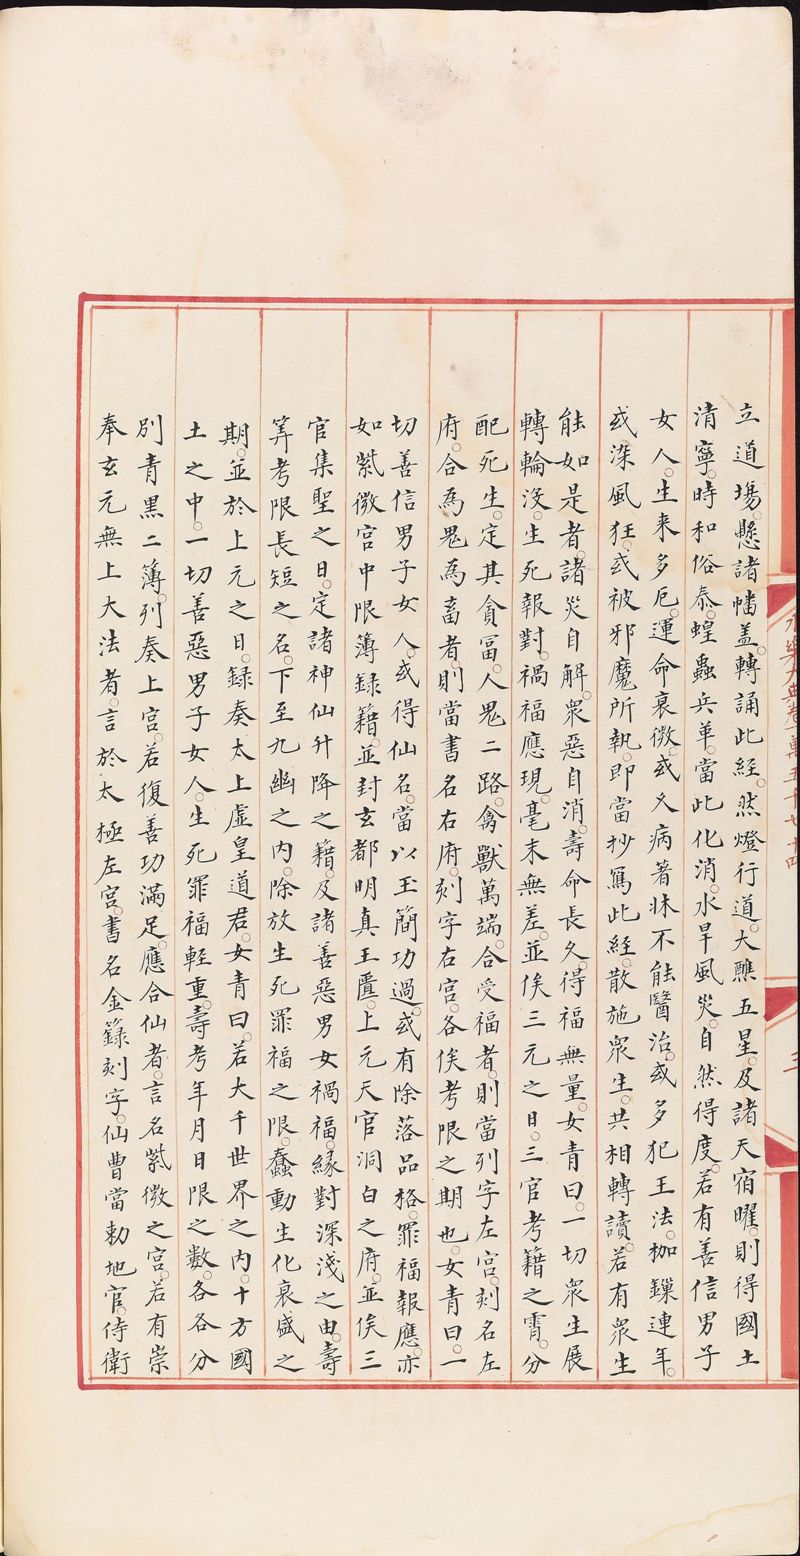 立道場。懸諸幡蓋。轉誦此經。然燈行道。大醮五星。及諸天宿曜。則得國土
清寧。時和俗泰。蝗蟲兵革。當此化消。水旱風災。自然得度。若有善信男子
女人。生来多厄。運命衰微。或久病著牀不能醫治。或多犯王法。枷鏁連年。
或深風狂。或被邪魔所執。即當抄寫此經。散施眾生。共相轉讀。若有眾生
能如是者。諸災自解。眾惡自消。壽命長久。得福無量。女青曰。一切眾生展
轉輪沒。生死報對。禍福應現。毫末無差。並俟三元之日。三官考籍之霄。分
配死生。定其貪富。人鬼二路。禽獸萬端。合受福者。則當列字左宮。刻名左
府。合為鬼為畜者。則當書名右府。刻字右宮。各俟考限之期也。女青曰。一
切善信男子女人。或得仙名。當以玉簡功過。或有除落品格。罪福報應。亦
如紫微宮中限簿録籍。並封玄都明真玉匱。上元天官洞白之府。並俟三
官集聖之日。定諸神仙升降之籍。及諸善惡男女禍福。緣對深淺之由。壽
筭考限長短之名。下至九幽之内。除放生死罪福之限。蠢動生化衰盛之
期。並於上元之日。録奏太上虛皇道君。女青曰。若大千世界之内。十方國
土之中。一切善惡男子女人。生死罪福輕重。壽考年月日限之數。各各分
別青黑二簿。列奏上宮。若復善功滿足。應合仙者。言名紫微之宮。若有崇
奉玄元無上大法者。言於太極左宮。書名金籙刻字。仙曹當勅地官。侍衛